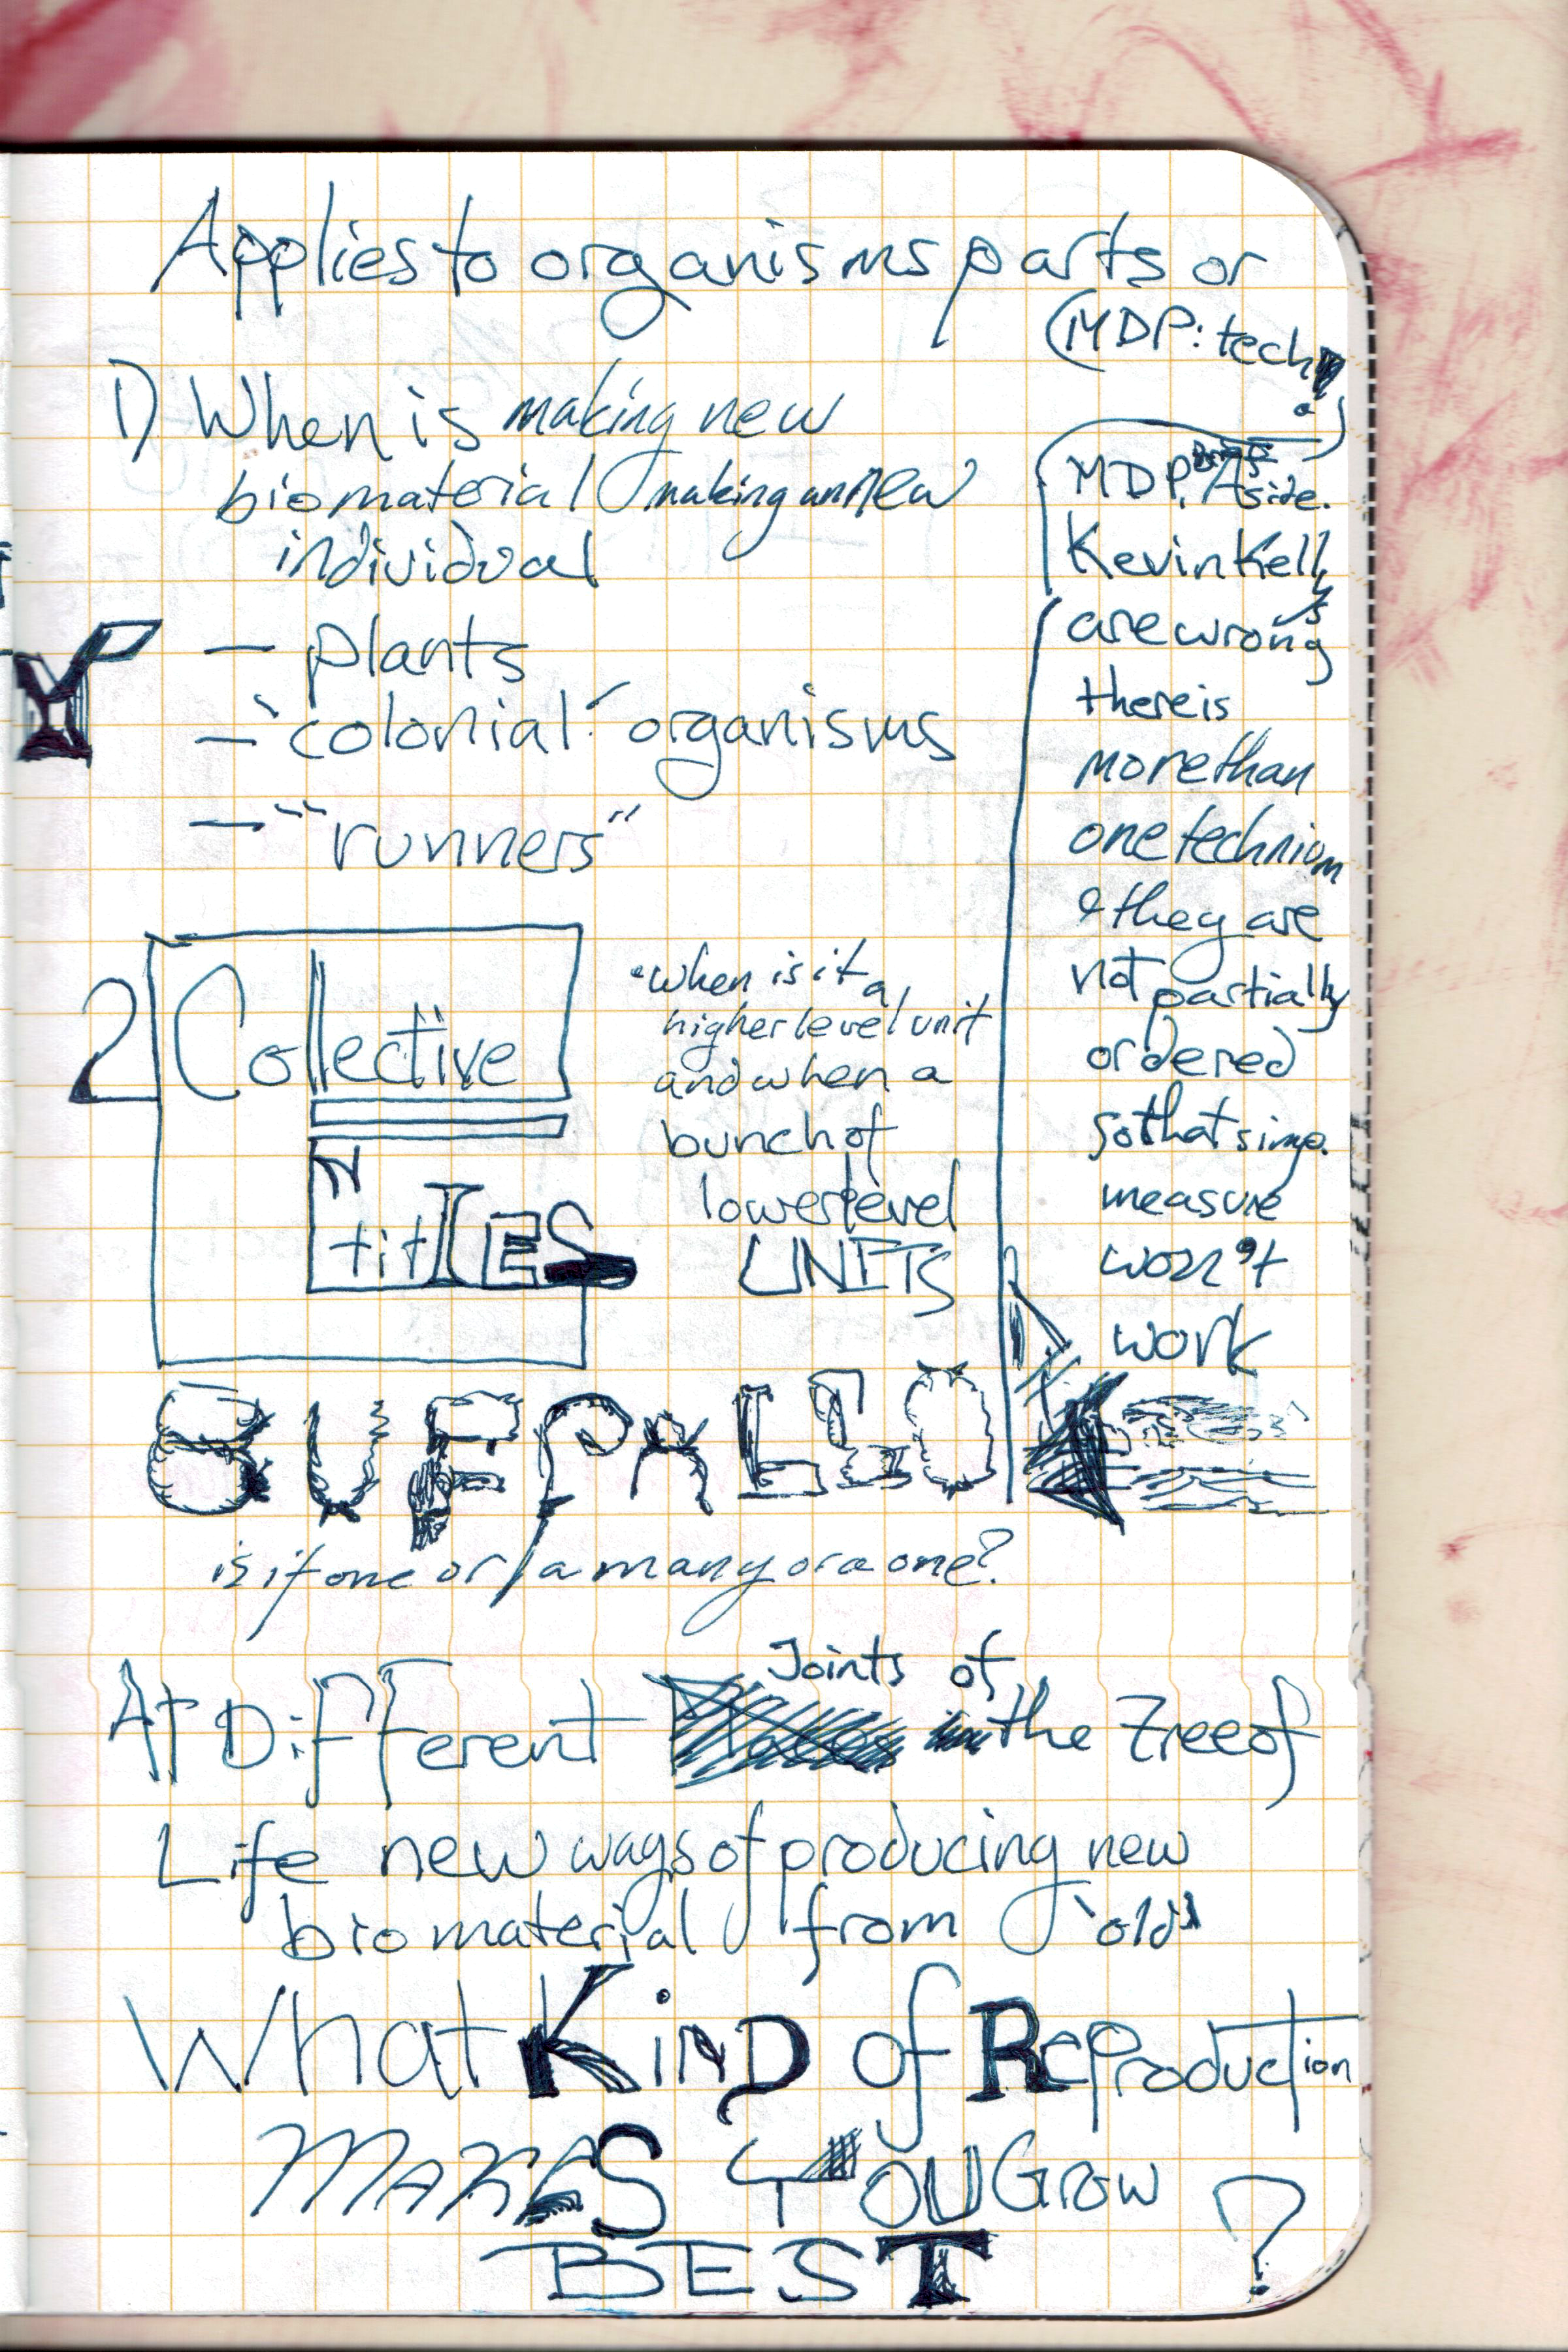 Applies to organisms parts or
(MDP: tech
?)
1) When is making new
biomaterial making a new
individual
— plants
— 'colonial' organisms
— "runners"
2 Collective
NtitIES
• when is it a
higher level unit
and when a
bunch of
lower level
UNITS
MDP. Brief Aside.
Kevin Kelly's
are wrong
there is
more than
one technium
& they are
not partially
ordered
so that simp.
measure
won't
work
BUFFALO
is it one or a many or a one?
At Different Joints of the Tree of
Life new ways of producing new
biomaterial from 'old'
What KinD of Reproduction
MAKES YOU Grow
BEST ?